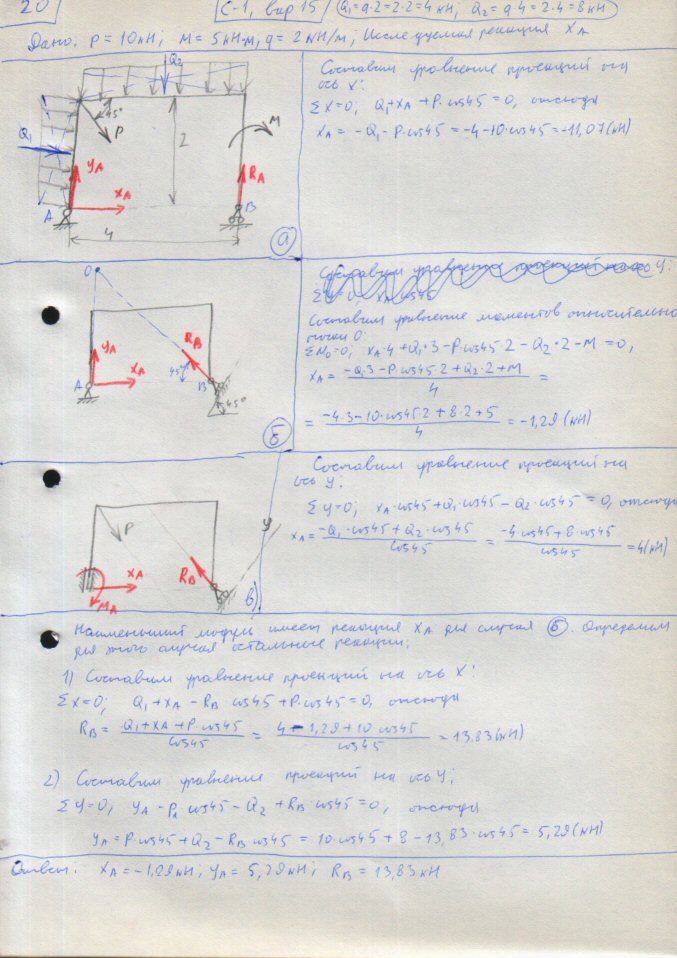 20
С-1, вар 15
Q₁ = q·2 = 2·2 = 4 кН, Q₂ = q·4 = 2·4 = 8 кН
Дано: P = 10 кН; M = 5 кН·м, q = 2 кН/м, Исследуемая реакция XA
Q₂
45°
P
Q₁
2
M
YA
XA
RA
A
B
4
а
Составим уравнение проекций на
ось X:
ΣX=0; Q₁+XA+P·cos45=0, отсюда
XA = -Q₁-P·cos45 = -4-10·cos45 = -11,07 (кН)
O
YA
RB
A
XA
45°
B
45°
б
Составим уравнение моментов относительно
точки O:
ΣM₀=0; XA·4 + Q₁·3 - P·cos45·2 - Q₂·2 - M = 0,
XA = (-Q₁·3 - P·cos45·2 + Q₂·2 + M)/4 =
= (-4·3 - 10·cos45·2 + 8·2 + 5)/4 = -1,29 (кН)
P
XA
RB
MA
y
в)
Составим уравнение проекций на
ось y:
Σy=0; XA·cos45 + Q₁·cos45 - Q₂·cos45 = 0, отсюда
XA = (-Q₁·cos45 + Q₂·cos45)/cos45 = (-4cos45 + 8·cos45)/cos45 = 4 (кН)
Наименьший модуль имеет реакция XA для случая б. Определим
для этого случая остальные реакции;
1) Составим уравнение проекций на ось X:
ΣX=0; Q₁+XA - RB·cos45 + P·cos45 = 0, отсюда
RB = (Q₁+XA+P·cos45)/cos45 = (4-1,29+10·cos45)/cos45 = 13,83 (кН)
2) Составим уравнение проекций на ось Y;
ΣY=0, YA - P·cos45 - Q₂ + RB·cos45 = 0, отсюда
YA = P·cos45 + Q₂ - RB·cos45 = 10·cos45 + 8 - 13,83·cos45 = 5,29 (кН)
Ответ: XA = -1,29 кН; YA = 5,29 кН; RB = 13,83 кН